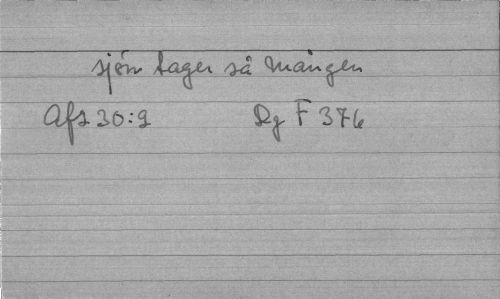 sjön tager så mången
Afs 30:9 Dg F 376